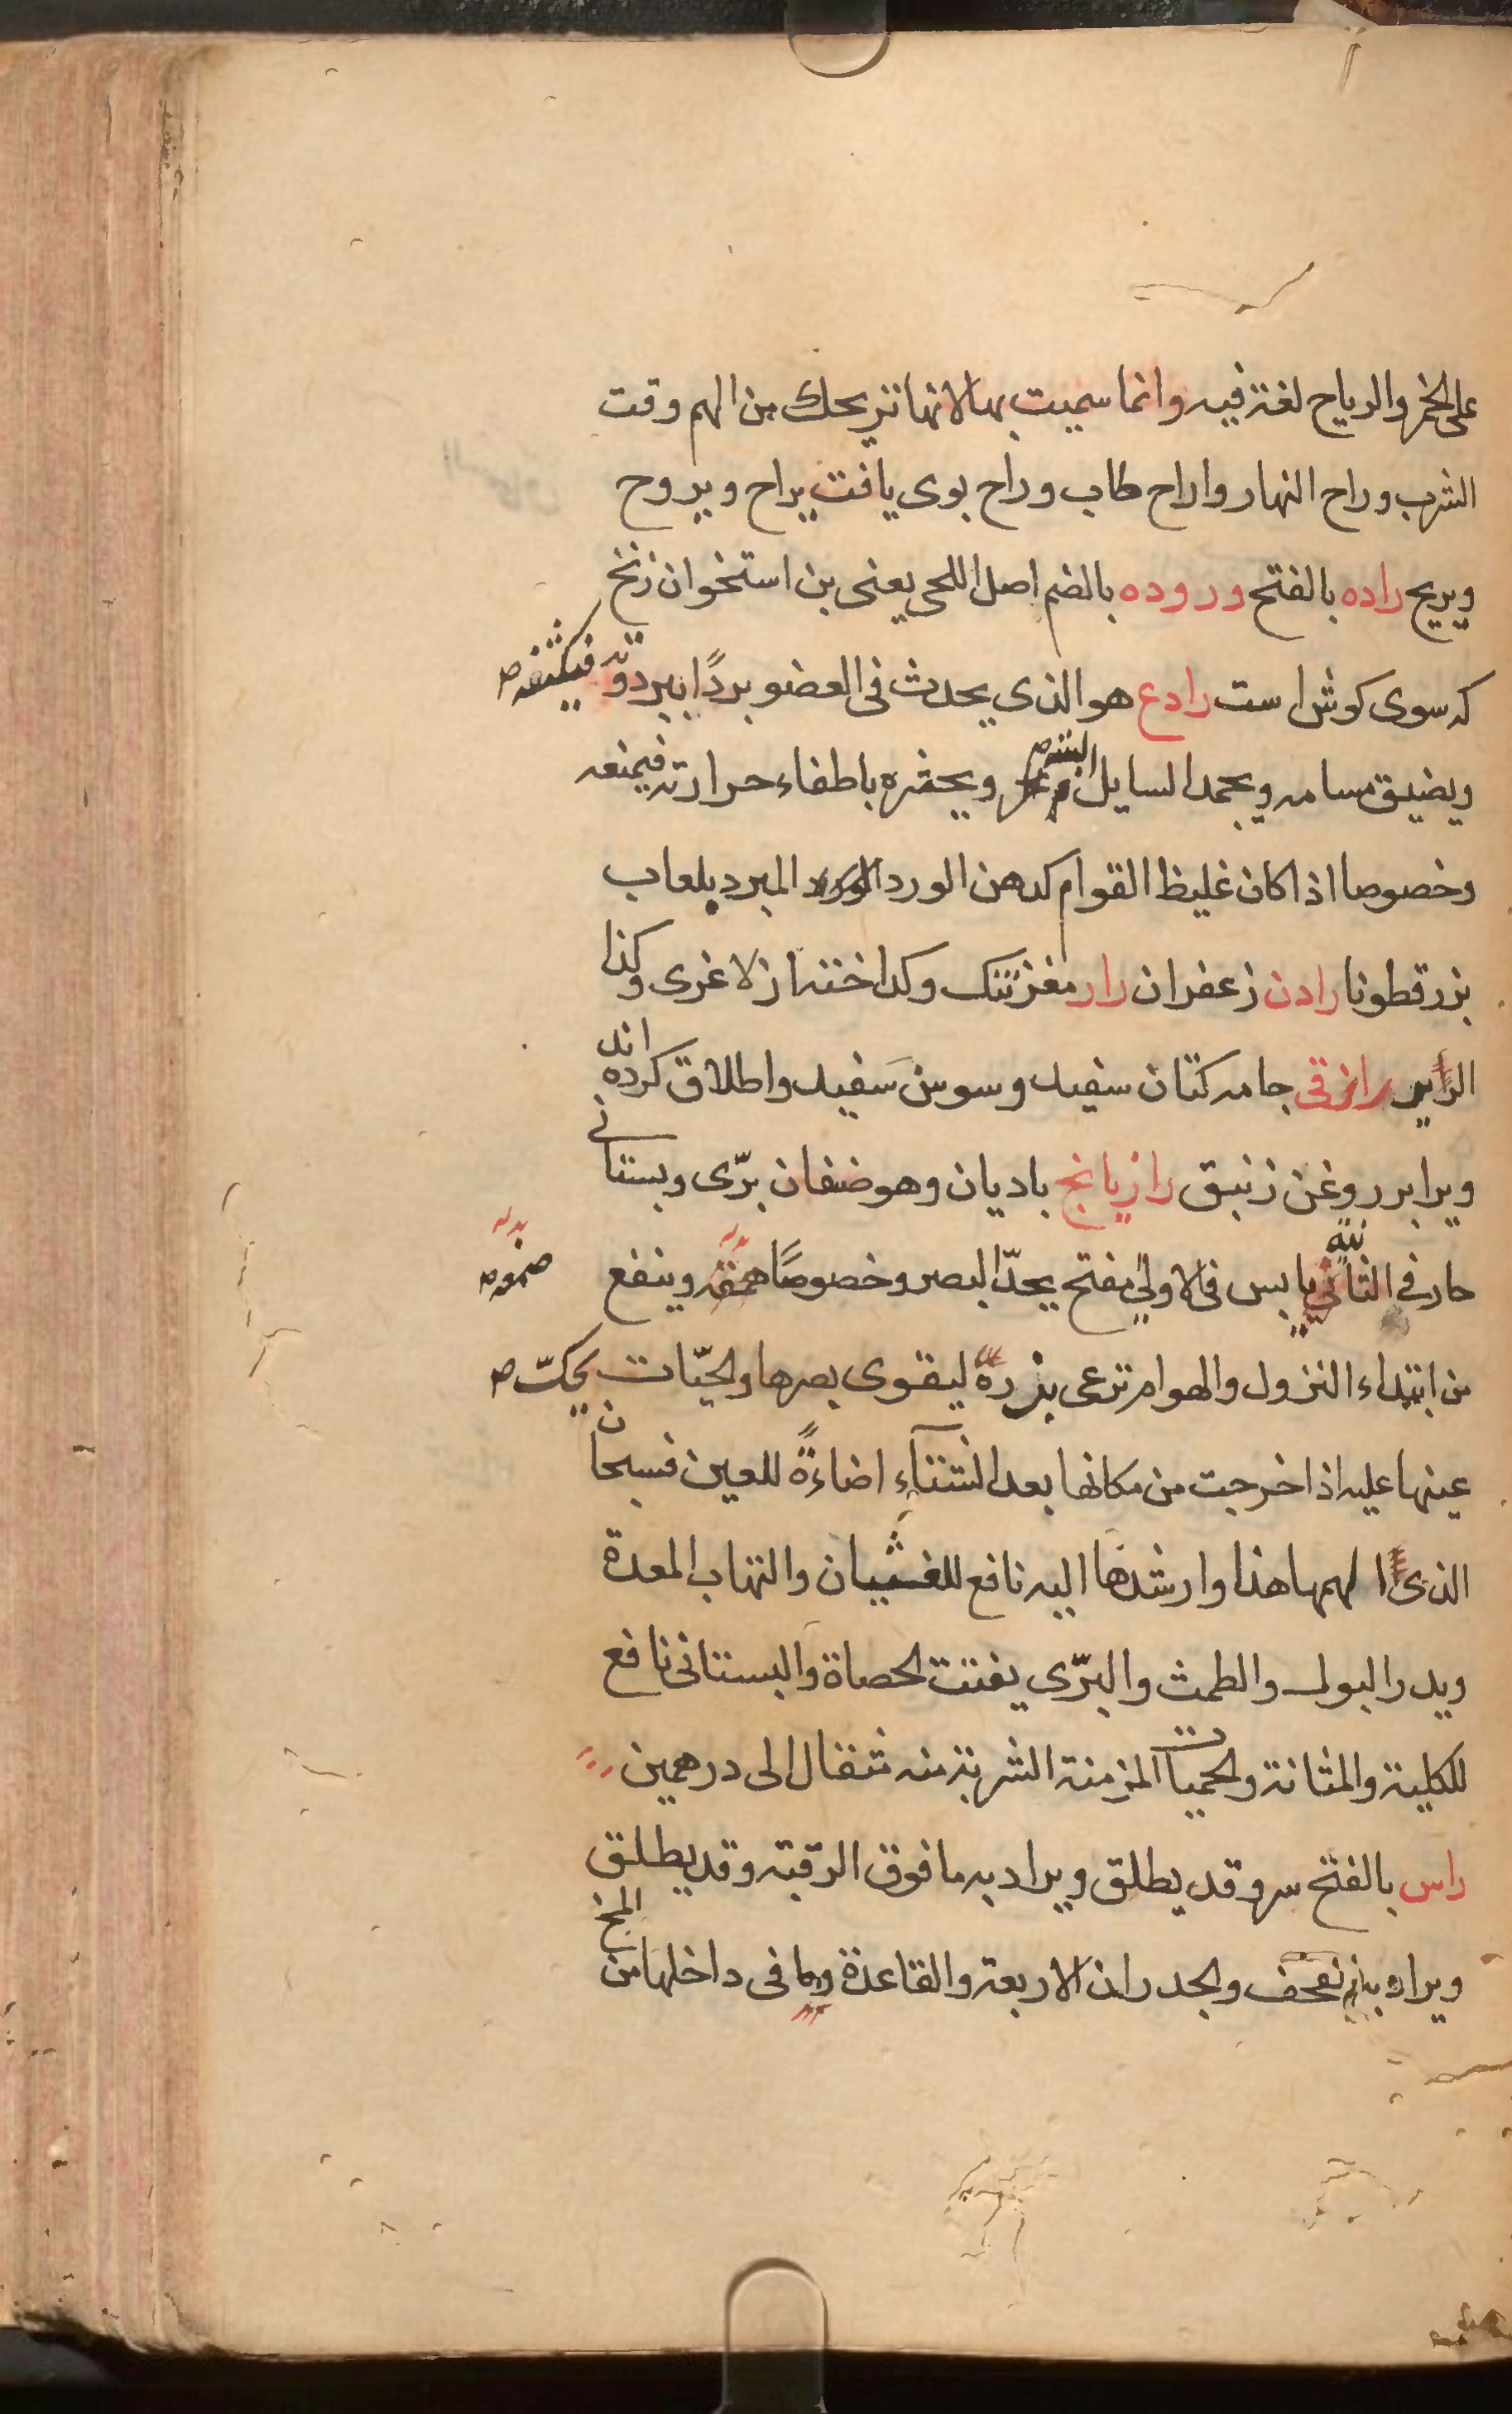 على الخمر والرياح لغة فيه وانما سميت بها لانها تريحك من الهم وقت
الشرب وراح النهار واراح طاب وراح بوى يافت يراح ويروح
ويريح راده بالفتح وروده بالضم اصل اللحى يعنى بن استخوان زنخ
كه سوى كوش است رادع هو الذى يحدث فى العضو بردًا ببردوته فيكثفه
ويضيق مسامه ويجمد السايل اليه ويخثره باطفاء حرارته فيمنعه
وخصوصا اذا كان غليظ القوام كدهن الورد المبرد بلعاب
بزرقطونا رادن زعفران رار مغز تنك وكداخته از لاغرى وكذا
الرير رازقى جامه كتان سفيد وسوسن سفيد واطلاق كرده اند
ويرا بر روغن زنبق رازيانج باديان وهو صنفان برّى وبستانى
حار فى الثانية يابس فى الاولى مفتح يحدّ البصر وخصوصًا صمغه وينفع
من ابتداء النزول والهوام ترعى بزره ليقوى بصرها والحيّات يحكّ
عينها عليه اذا خرجت من مكانها بعد الشتاء اضاءةً للعين فسبحان
الذى الهمها هذا وارشدها اليه نافع للغشيان والتهاب المعدة
ويدر البول والطمث والبرّى يفتت الحصاة والبستانى نافع
للكلية والمثانة والحميات المزمنة الشربة منه مثقال الى درهمين
راس بالفتح سر وقد يطلق ويراد به ما فوق الرقبة وقد يطلق
ويراد به القحف والجدران الاربعة والقاعدة وما فى داخلها من المخ